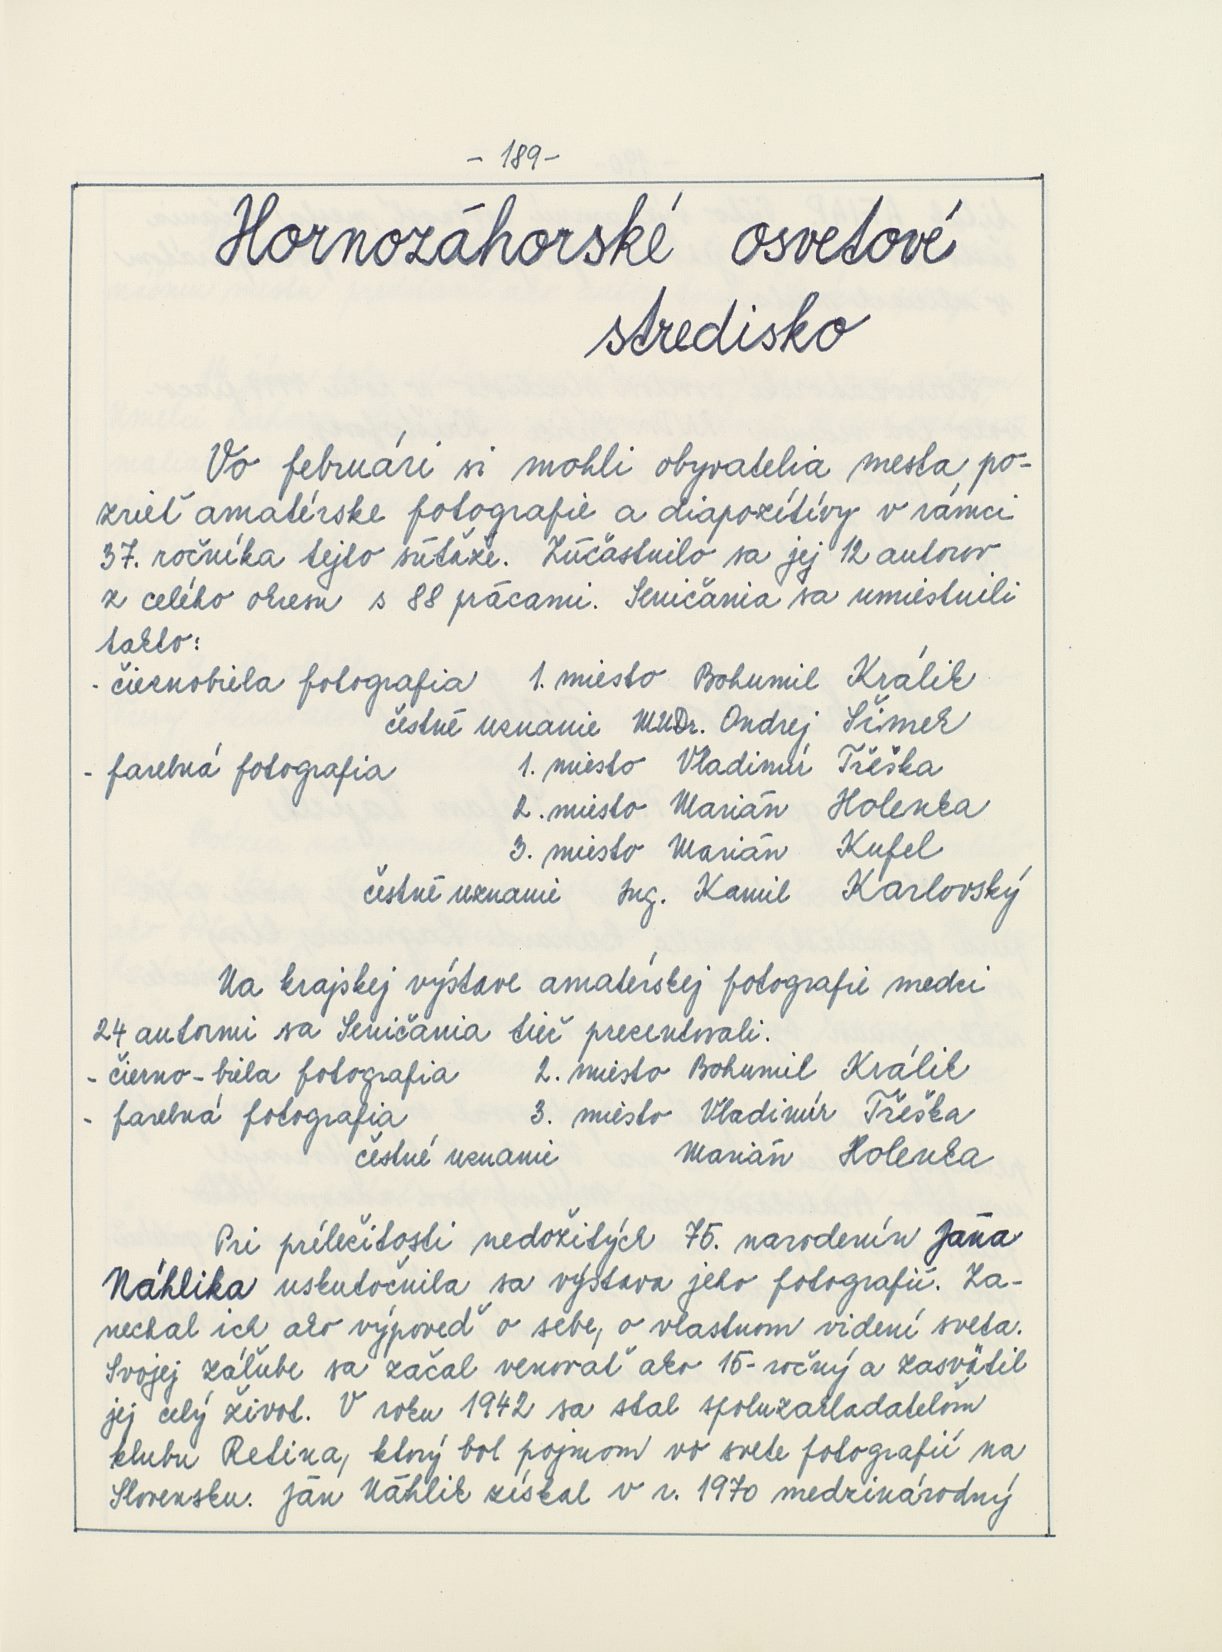 - 189 -
Hornozáhorské osvetové
stredisko
Vo februári si mohli obyvatelia mesta po-
zrieť amatérske fotografie a diapozitívy v rámci
37. ročníka tejto súťaže. Zúčastnilo sa jej 12 autorov
z celého okresu s 88 prácami. Seničania sa umiestnili
takto:
- čiernobiela fotografia 1. miesto Bohumil Králik
čestné uznanie MUDr. Ondrej Šimek
- farebná fotografia 1. miesto Vladimír Třeška
2. miesto Marián Holenka
3. miesto Marián Kufel
čestné uznanie Ing. Kamil Karlovský
Na krajskej výstave amatérskej fotografie medzi
24 autormi sa Seničania tiež prezentovali.
- čierno-biela fotografia 2. miesto Bohumil Králik
- farebná fotografia 3. miesto Vladimír Třeška
čestné uznanie Marián Holenka
Pri príležitosti nedožitých 75. narodenín Jána
Náhlika uskutočnila sa výstava jeho fotografií. Za-
nechal ich ako výpoveď o sebe, o vlastnom videní sveta.
Svojej záľube sa začal venovať ako 15-ročný a zasvätil
jej celý život. V roku 1942 sa stal spoluzakladateľom
klubu Retina, ktorý bol pojmom vo svete fotografií na
Slovensku. Ján Náhlik získal v r. 1970 medzinárodný